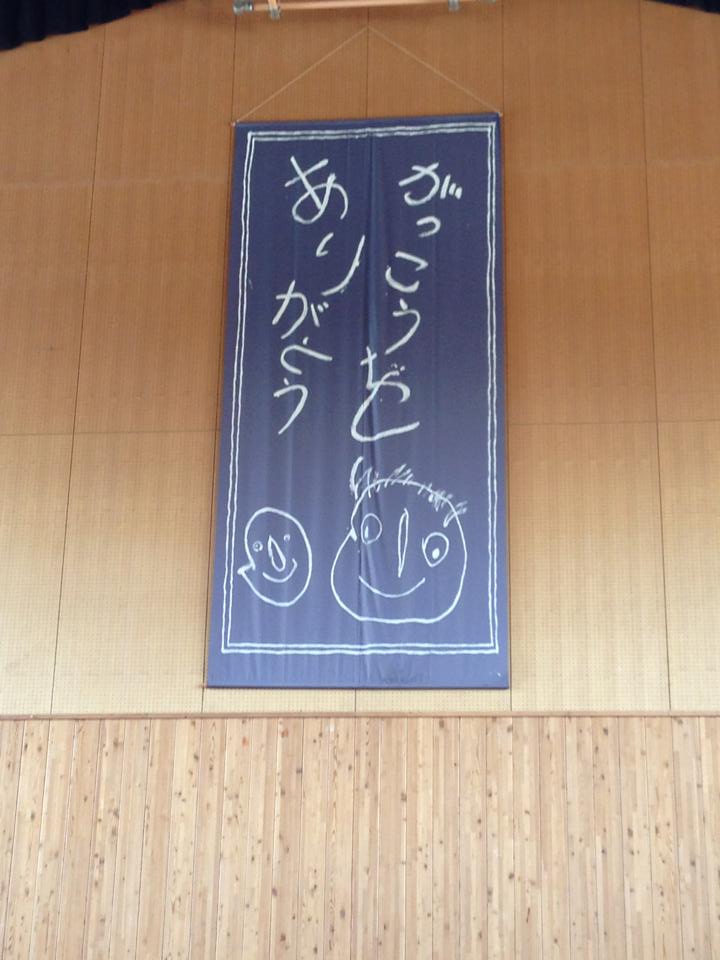 がっこう
ありがとう